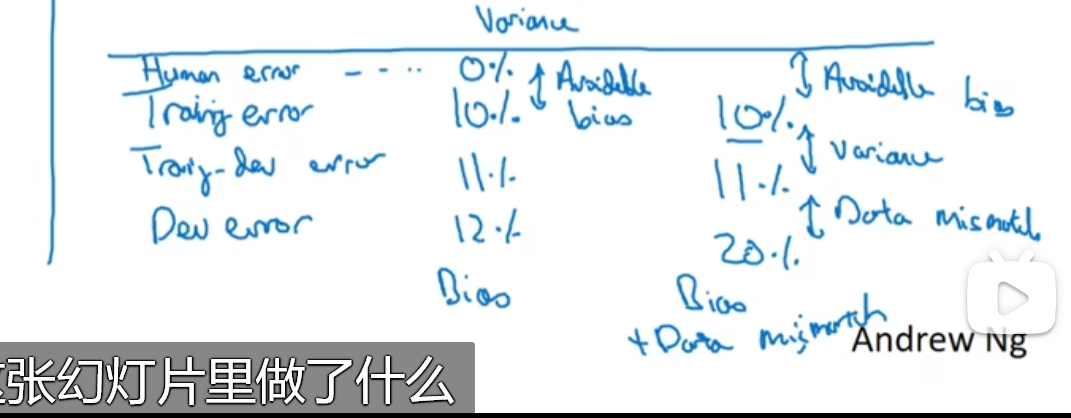 Variance
Human error ---.. 0% ↕ Avoidable bias ↕ Avoidable bias
Training error 10% 10%
↕ Variance
Training-dev error 11% 11%
↕ Data mismatch
Dev error 12% 20%
Bias Bias
+ Data mismatch
Andrew Ng
张幻灯片里做了什么